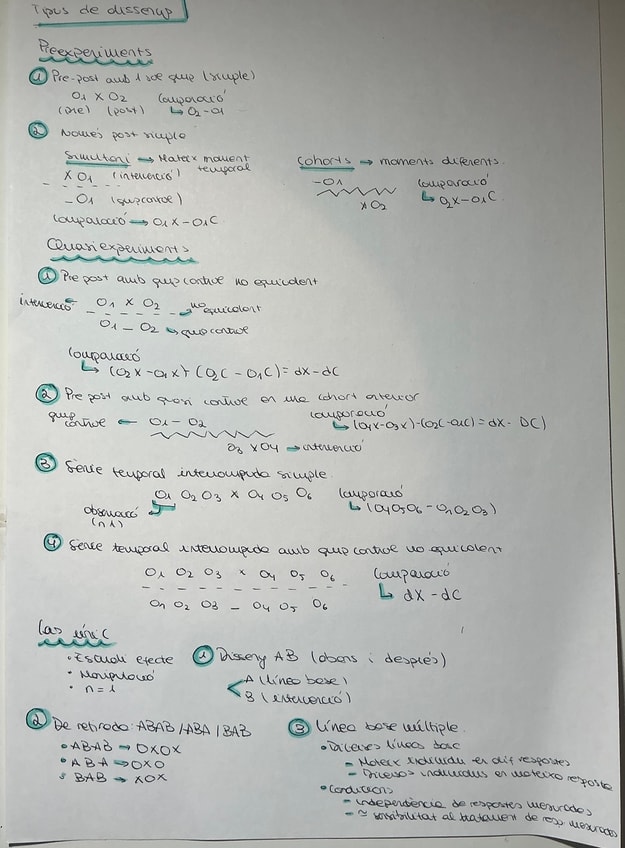 Tipus de disseny
Preexperiments
① Pre-post amb 1 sol grup (simple)
O1 X O2 Comparació
(pre) (post) ↳ O2-O1
② Només post simple
Simultani → Mateix moment temporal
X O1 (intervenció)
- - - - -
- O1 (grup control)
Comparació → O1X-O1C
Cohorts → moments diferents.
- O1 Comparació
X O2 ↳ O2X-O1C
Quasiexperiments
① Pre post amb grup control no equivalent
intervenció ← O1 X O2
- - - - - → no equivalent
O1 - O2 → grup control
Comparació
↳ (O2X-O1X)-(O2C-O1C)= dX-dC
② Pre post amb quasi control en una cohort anterior
grup control ← O1-O2
O3 X O4 → intervenció
Comparació
↳ (O4X-O3X)-(O2C-O1C)=dX-DC)
③ Sèrie temporal interrompuda simple
O1 O2 O3 X O4 O5 O6 Comparació
observació (n1) ↳ (O4O5O6-O1O2O3)
④ Sèrie temporal interrompuda amb grup control no equivalent
O1 O2 O3 X O4 O5 O6 Comparació
- - - - - - - - - ↳ dX-dC
O1 O2 O3 - O4 O5 O6
Cas únic
• Estudi efecte
• Manipulació
• n=1
① Disseny AB (abans i després)
A (línea base)
B (intervenció)
② De retirada: ABAB/ABA/BAB
• ABAB → OXOX
• ABA → OXO
• BAB → XOX
③ Línea base múltiple
• Diverses línees base
- Mateix individu en dif respostes
- Diversos individus en mateixa resposta
• Condicions
- independència de respostes mesurades
- ≃ sensibilitat al tractament de resp mesurades